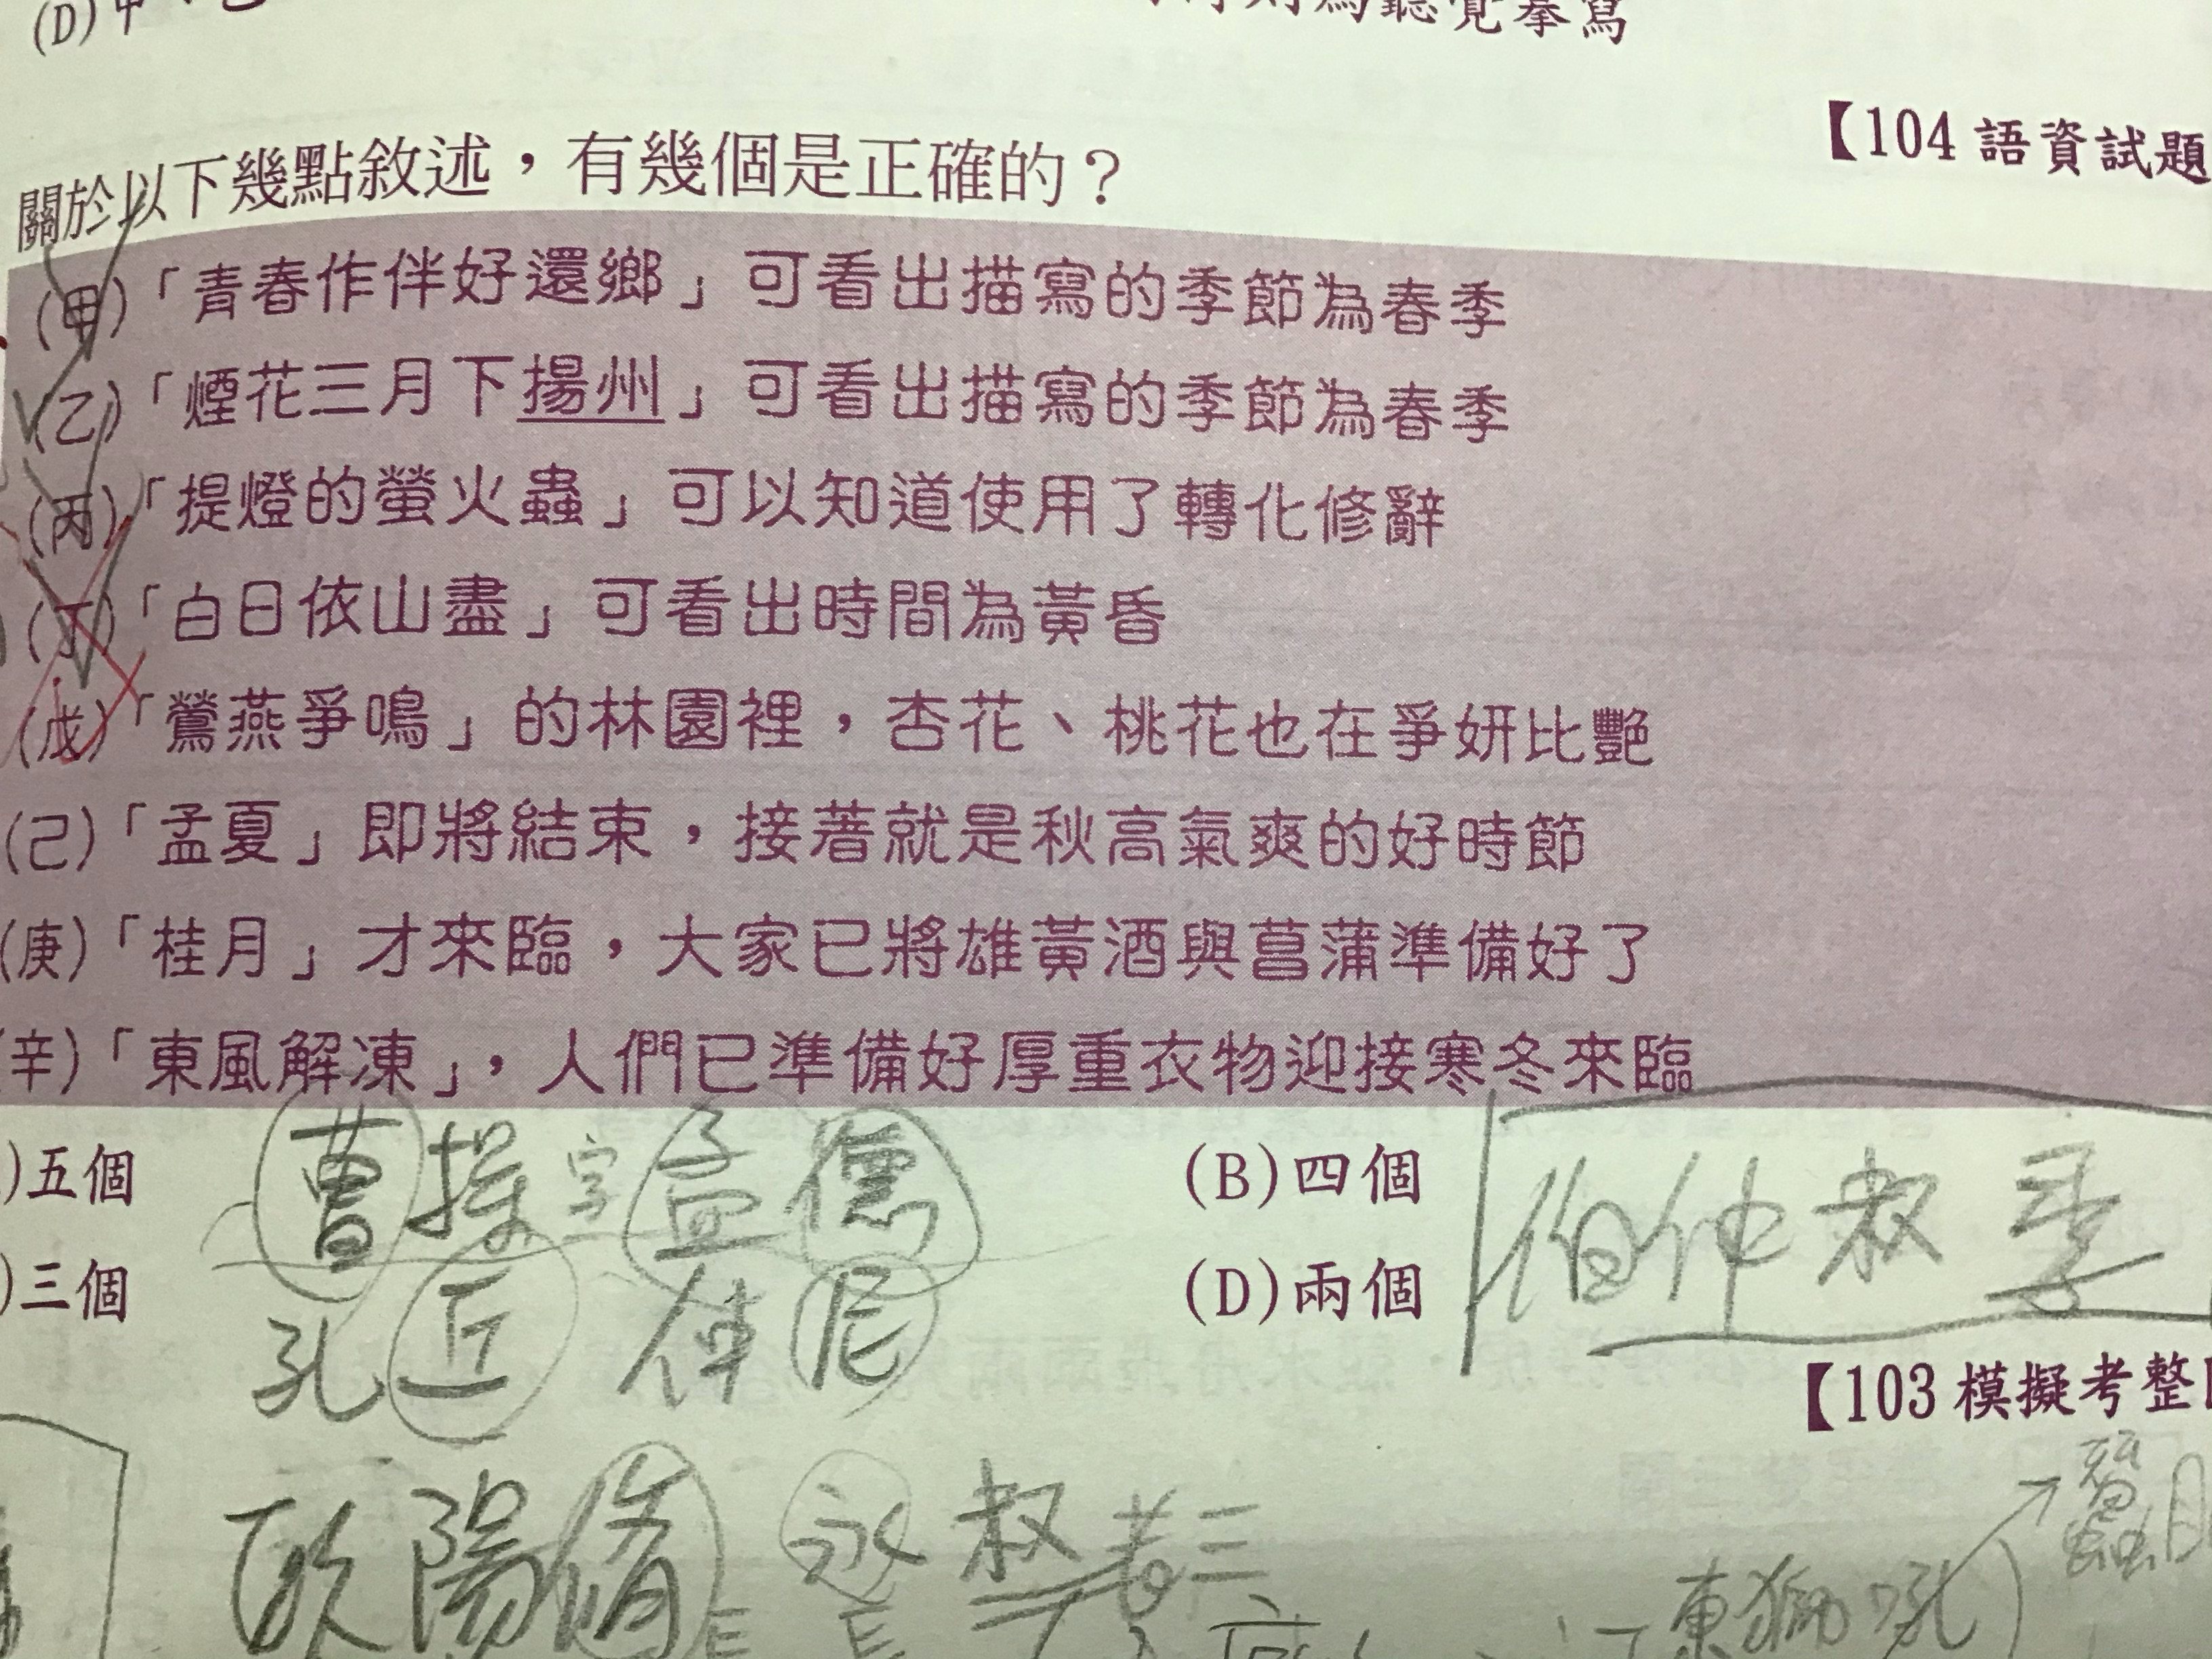 (D)
聽覺摹寫
【104 語資試題
關於以下幾點敘述，有幾個是正確的？
(甲)「青春作伴好還鄉」可看出描寫的季節為春季
(乙)「煙花三月下揚州」可看出描寫的季節為春季
(丙)「提燈的螢火蟲」可以知道使用了轉化修辭
(丁)「白日依山盡」可看出時間為黃昏
(戊)「鶯燕爭鳴」的林園裡，杏花、桃花也在爭妍比豔
(己)「孟夏」即將結束，接著就是秋高氣爽的好時節
(庚)「桂月」才來臨，大家已將雄黃酒與菖蒲準備好了
(辛)「東風解凍」，人們已準備好厚重衣物迎接寒冬來臨
)五個
(B)四個
)三個
(D)兩個
曹操字孟德
伯仲叔季
孔丘 仲尼
【103 模擬考整
歐陽脩 永叔 老三
東獅吼